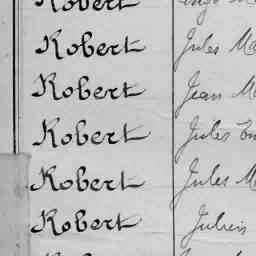 Robert
Robert Jules
Robert Jean
Robert Jules
Robert Jules
Robert Julien